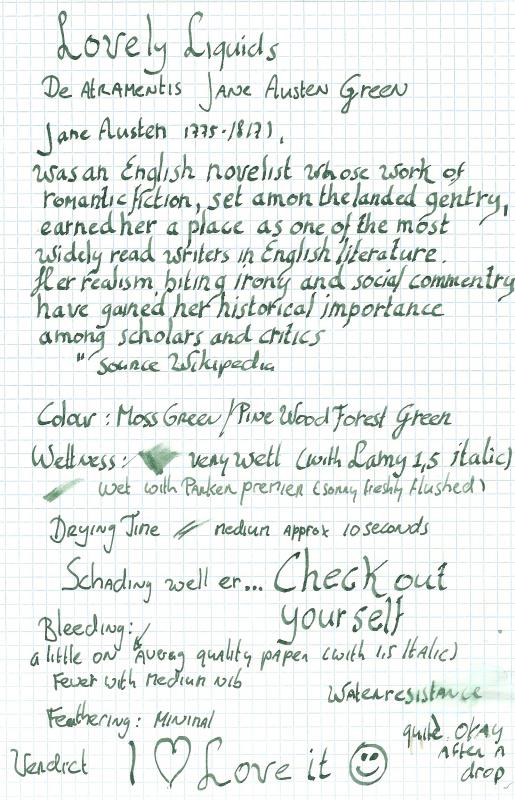 Lovely Liquids
De Atramentis Jane Austen Green
Jane Austen 1775-1817),
was an English novelist whose work of
romantic fiction, set amon the landed gentry,
earned her a place as one of the most
widely read writers in English literature.
Her realism, biting irony and social commentry
have gained her historical importance
among scholars and critics
" source Wikipedia
Colour : Moss Green / Pine Wood Forest Green
Wettness: very wett (with Lamy 1,5 italic)
wet with Parker premier (sorry freshly flushed)
Drying Time medium approx 10 seconds
Schading well er... Check out
yourself
Bleeding:
a little on Averag quality paper (with 1.5 Italic)
Fewer with medium nib
Waterresistance
quite okay
after a
drop
Feathering: Minimal
Verdict I ♡ Love it ☺